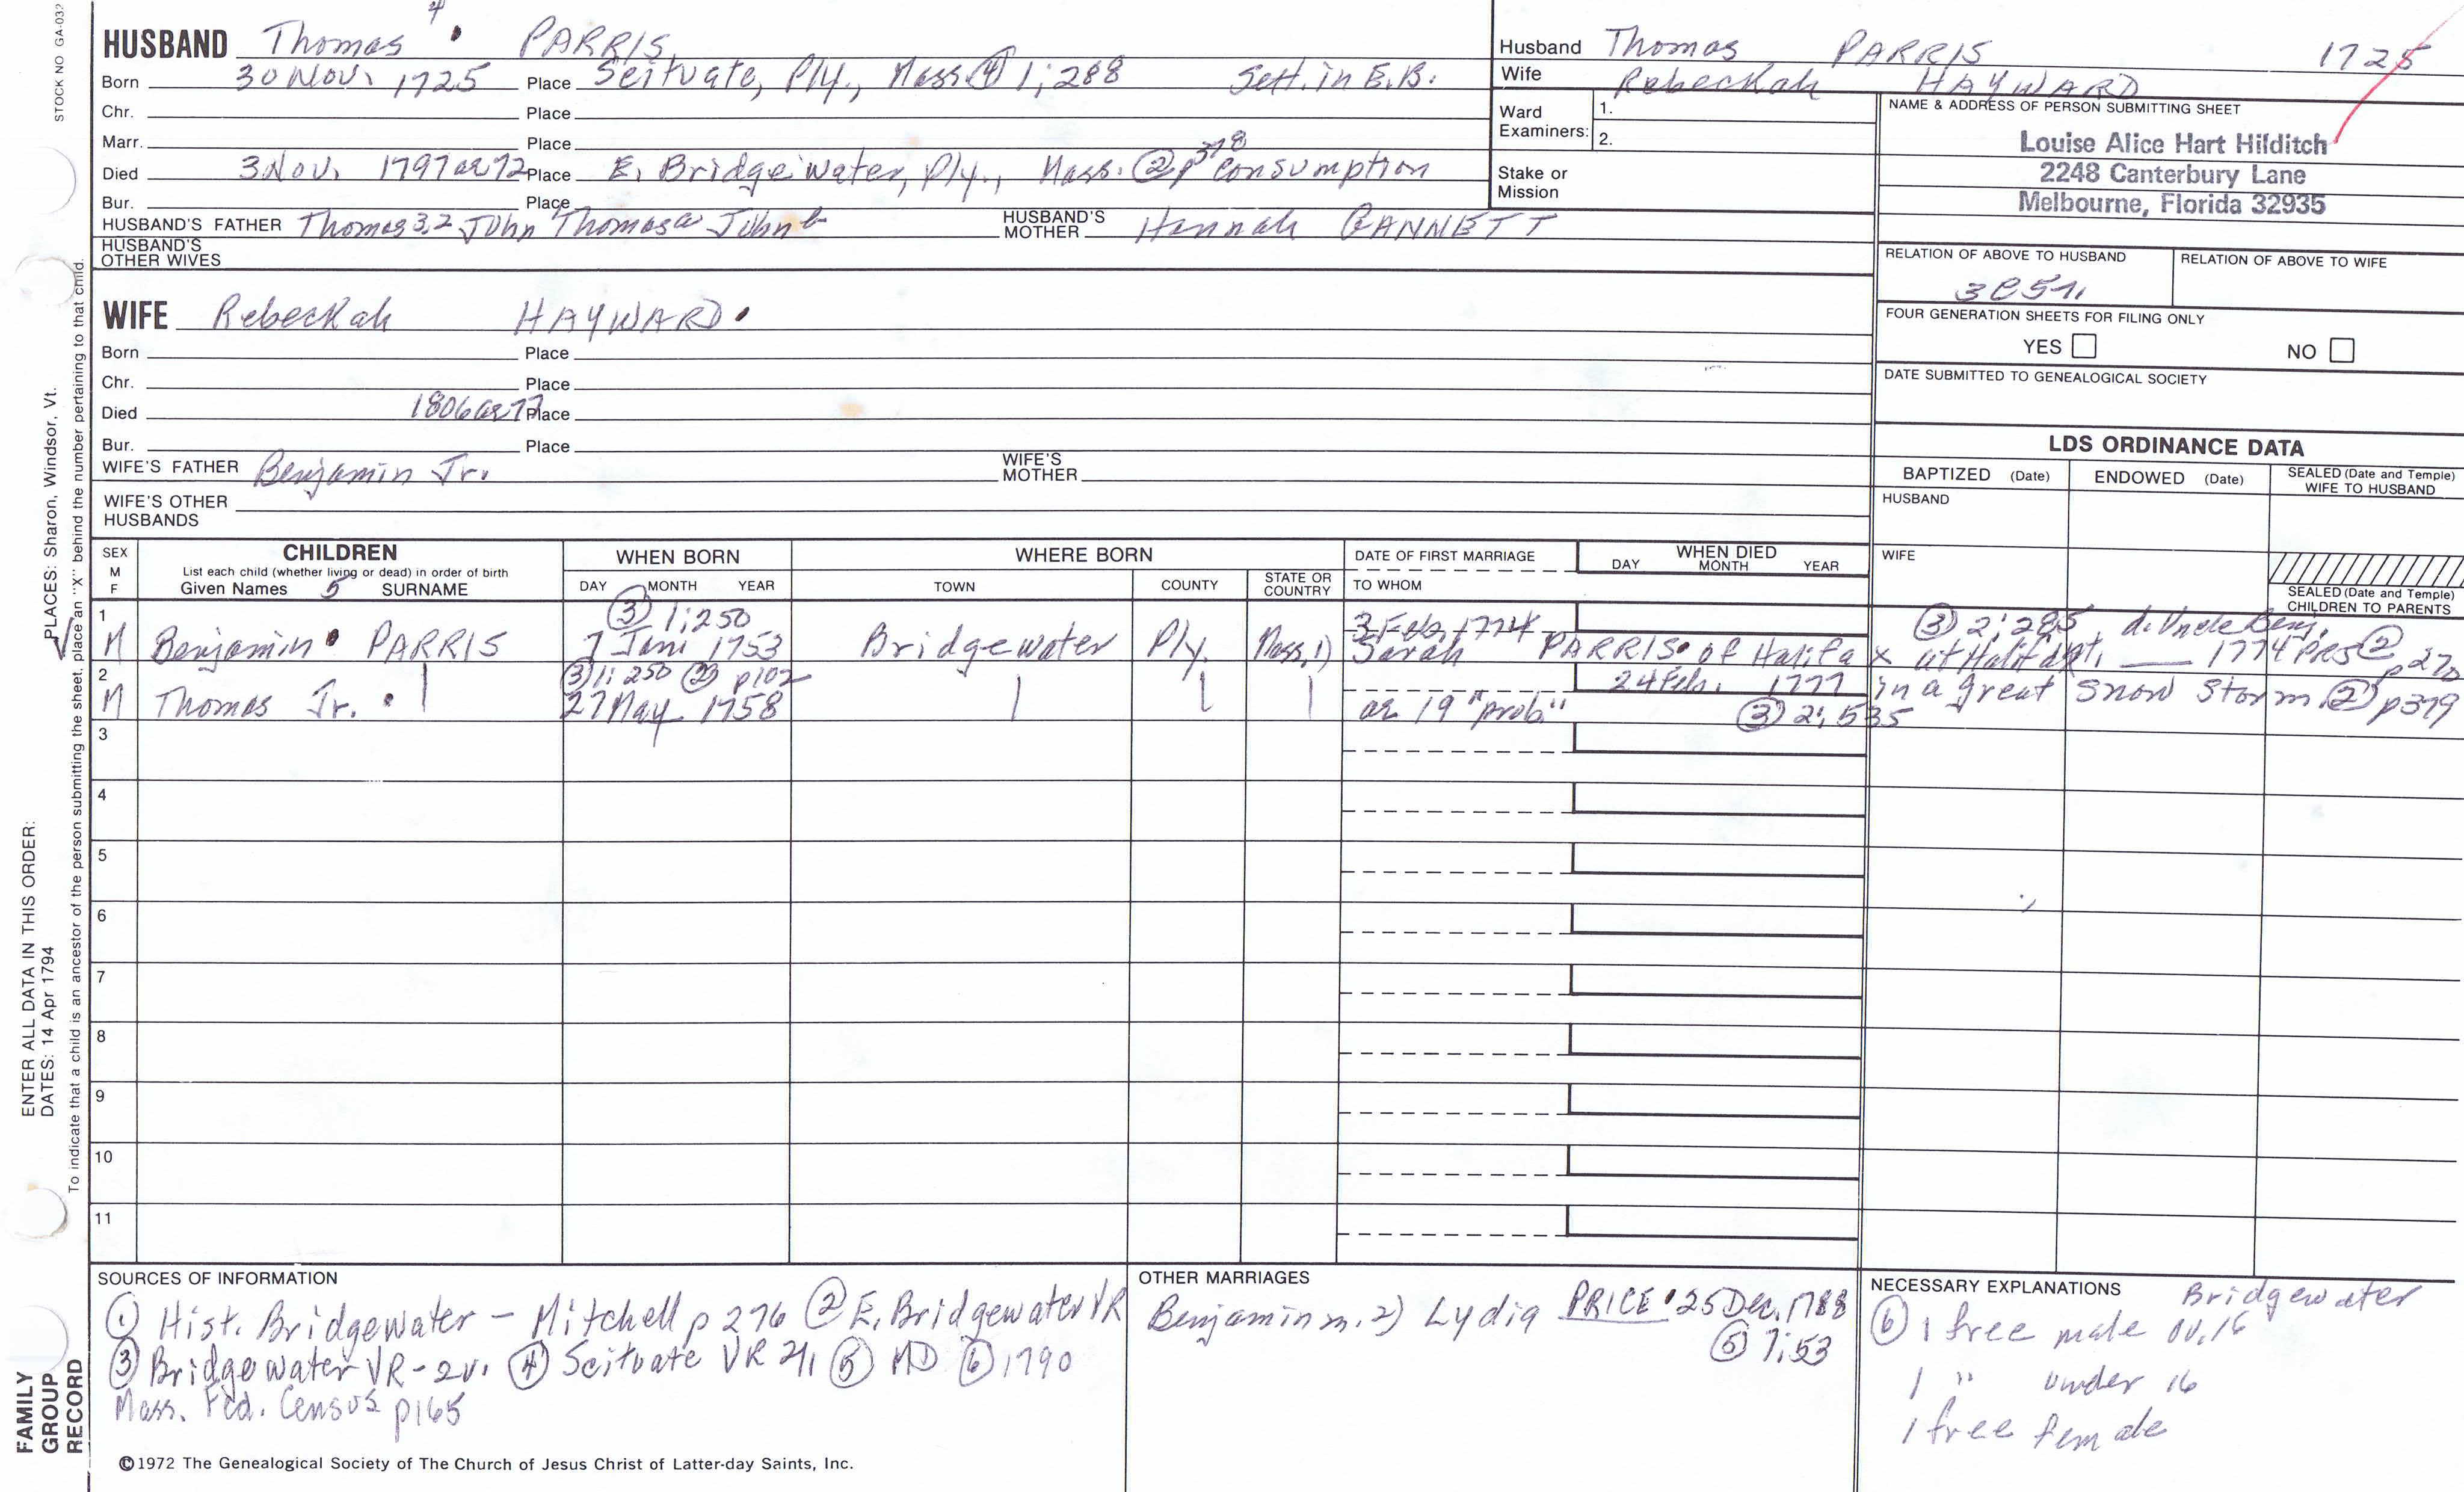 STOCK NO GA-032
4
HUSBAND Thomas PARRIS
Born 30 Nov. 1725 Place Scituate, Ply., Mass. ④ 1;288 Sett. in E.B.
Chr. Place
Marr. Place
Died 3 Nov. 1797 ae 72 Place E. Bridgewater, Ply., Mass. ② p 378 consumption
Bur. Place
HUSBAND'S FATHER Thomas 3,2 John Thomas a John b HUSBAND'S MOTHER Hannah GANNETT
HUSBAND'S OTHER WIVES
WIFE Rebeckah HAYWARD
Born Place
Chr. Place
Died 1806 ae 77 Place
Bur. Place
WIFE'S FATHER Benjamin Jr. WIFE'S MOTHER
WIFE'S OTHER HUSBANDS
Husband Thomas PARRIS 1725
Wife Rebeckah HAYWARD
Ward Examiners: 1.
2.
Stake or Mission
NAME & ADDRESS OF PERSON SUBMITTING SHEET
Louise Alice Hart Hilditch
2248 Canterbury Lane
Melbourne, Florida 32935
RELATION OF ABOVE TO HUSBAND RELATION OF ABOVE TO WIFE
FOUR GENERATION SHEETS FOR FILING ONLY
YES NO
DATE SUBMITTED TO GENEALOGICAL SOCIETY
LDS ORDINANCE DATA
BAPTIZED (Date) ENDOWED (Date) SEALED (Date and Temple) WIFE TO HUSBAND
HUSBAND
WIFE
SEALED (Date and Temple) CHILDREN TO PARENTS
SEX M F CHILDREN WHEN BORN WHERE BORN DATE OF FIRST MARRIAGE WHEN DIED
List each child (whether living or dead) in order of birth
Given Names 5 SURNAME DAY MONTH YEAR TOWN COUNTY STATE OR COUNTRY TO WHOM DAY MONTH YEAR
1 ③ 1;250 3 Feb. 1774 ③ 2;285 d. Uncle Benj.
M Benjamin PARRIS 7 Jani 1753 Bridgewater Ply. Mass. 1) Sarah PARRIS of Halifax at Halifax int. 1774 PRS ② p 270
2 ③ 1;250 ② p102 24 Feb. 1777 in a great snow storm ② p379
M Thomas Jr. 27 May 1758 ae 19 "prob" ③ 2;535
3
4
5
6
7
8
9
10
11
SOURCES OF INFORMATION
① Hist. Bridgewater - Mitchell p 276 ② E. Bridgewater VR
③ Bridgewater VR - 2v. ④ Scituate VR 2v ⑤ MD ⑥ 1790
Mass. Fed. Census p165
OTHER MARRIAGES
Benjamin m. 2) Lydia PRICE 25 Dec. 1788
⑤ 7;53
NECESSARY EXPLANATIONS Bridgewater
⑥ 1 free male ov. 16
1 " under 16
1 free female
©1972 The Genealogical Society of The Church of Jesus Christ of Latter-day Saints, Inc.
FAMILY GROUP RECORD
ENTER ALL DATA IN THIS ORDER:
DATES: 14 Apr 1794
PLACES: Sharon, Windsor, Vt.
To indicate that a child is an ancestor of the person submitting the sheet, place an "X" behind the number pertaining to that child.